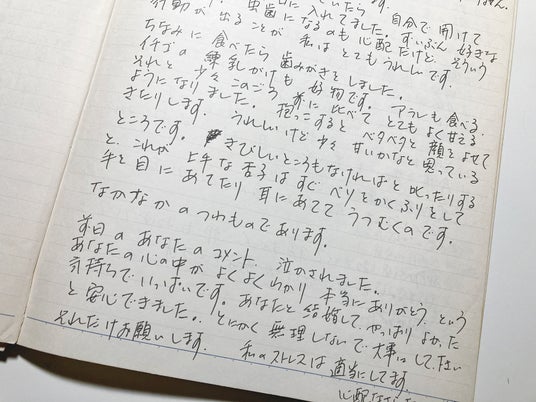 口に入れてました。自分で開けて
行動が 虫歯になるのも心配だけど、ずいぶん好きな
出ることが 私は とてもうれしいです。そういう
ちなみに 食べたら 歯みがきをしました。
イチゴの練乳がけも 好物です。アラレも食べる.
それと 少々 このごろ 前に比べて とてもよく甘える
ようになりました。抱っこすると ベタベタと 顔をよせて
きたりします。うれしいけど 少々 甘いかなと思っている
ところです。きびしいところもなければと叱ったりする
と、これが 上手な杏子は すぐ ベソをかくふりをして
手を目に あてたり 耳にあてて うつむくのです。
なかなかの つわものであります。
前日の あなたの コメント、泣かされました。
あなたの心の中が よくよくわかり 本当にありがとう という
気持ちで いっぱいです。あなたと 結婚して、やっぱり よかった
と 安心できました。とにかく 無理しないで 大事にして下さい
それだけお願いします。
私のストレスは 適当にしてます。
心配